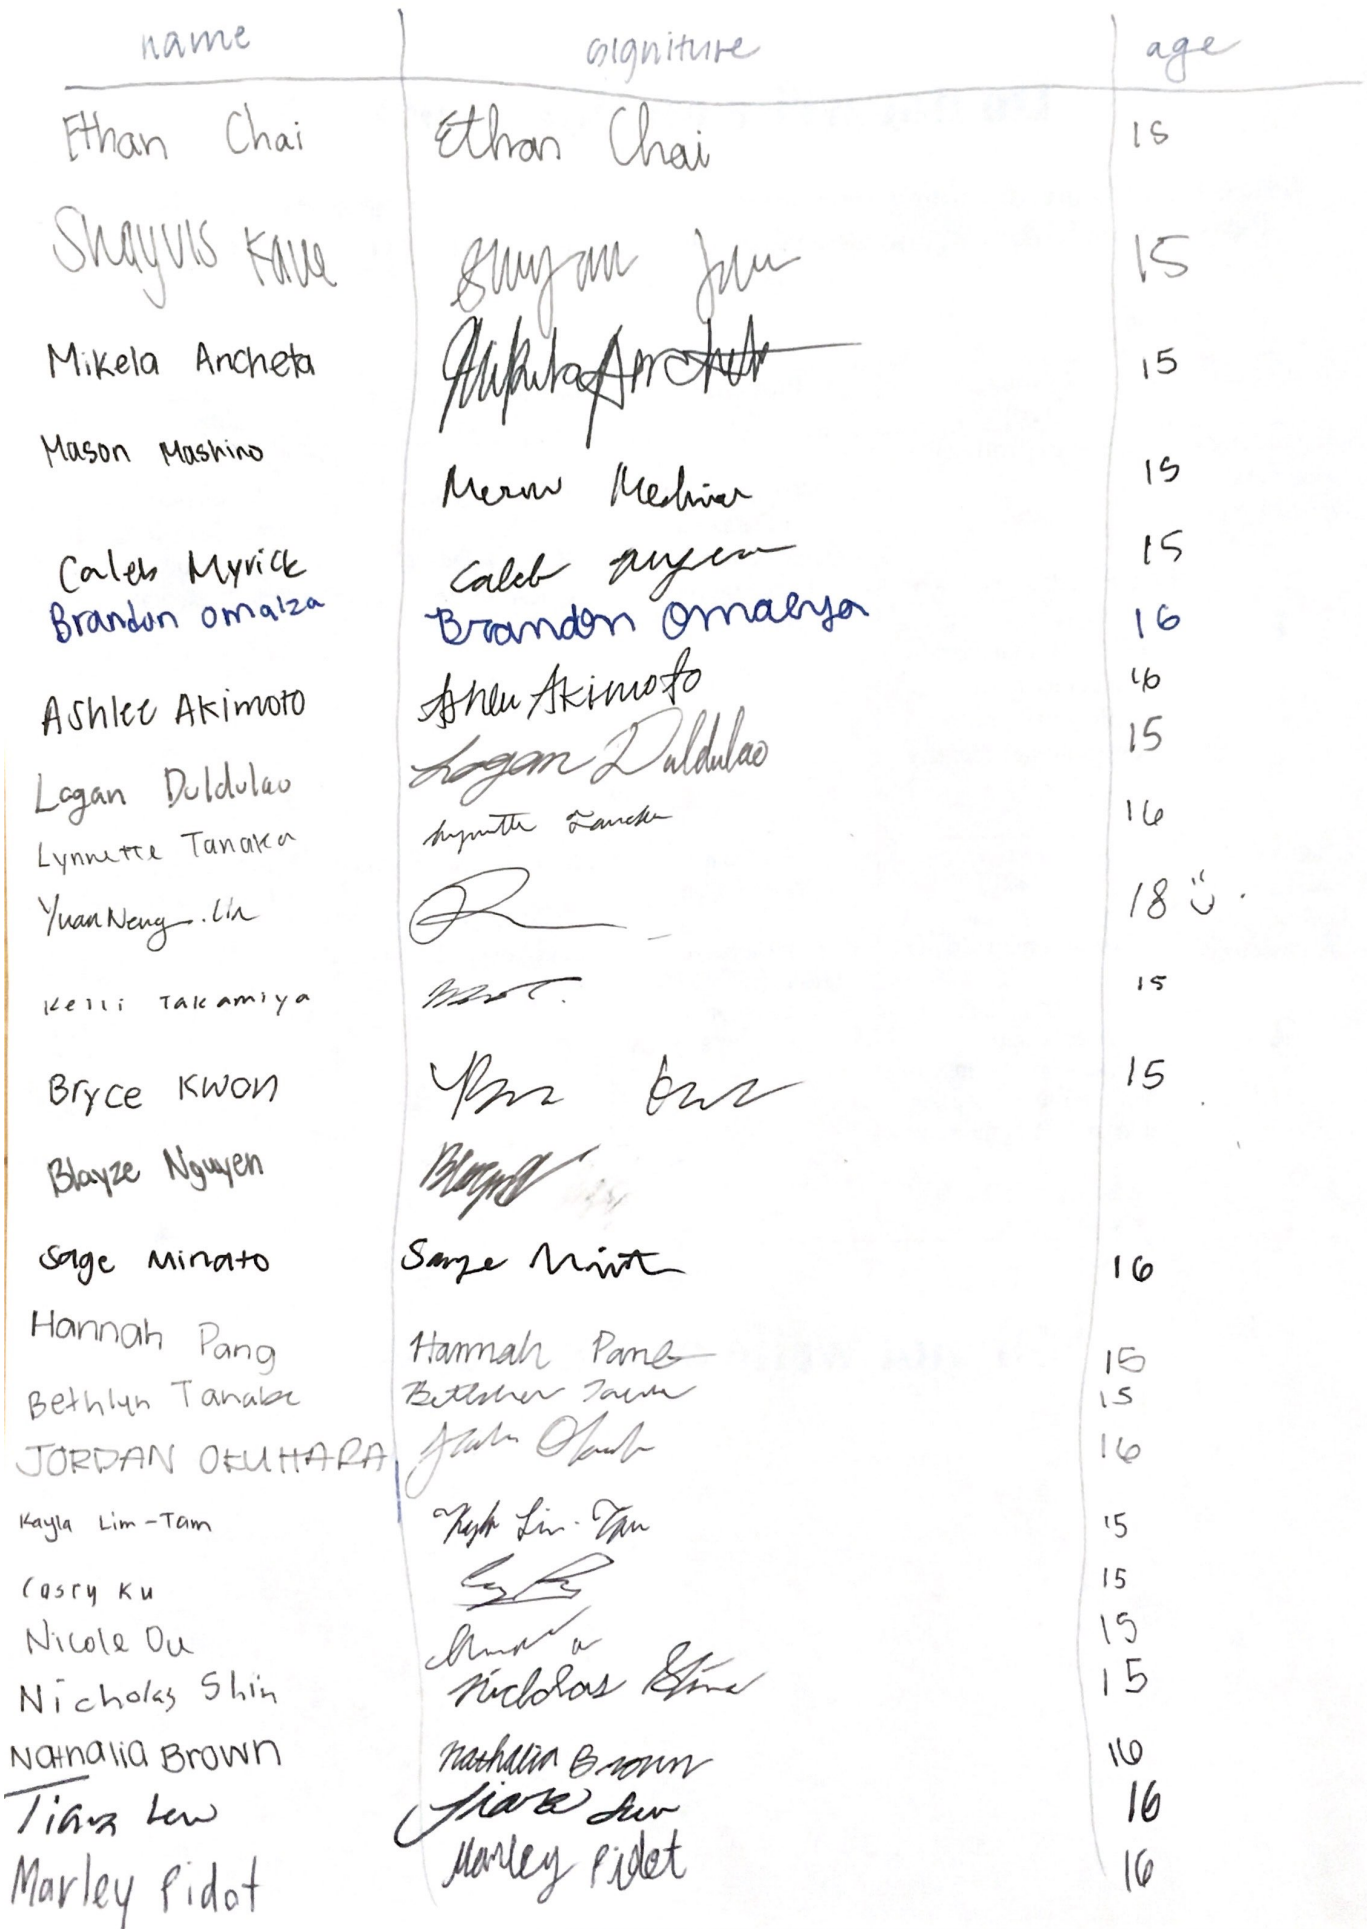 name signiture age
Ethan Chai Ethan Chai 15
Shayvis Kaue 15
Mikela Ancheta Mikela Ancheta 15
Mason Mashino 15
Caleb Myrick Caleb 15
Brandon Omalza Brandon Omalza 16
Ashlee Akimoto Ashlee Akimoto 16
Logan Duldulao Logan Duldulao 15
Lynnette Tanaka Lynnette Tanaka 16
YuanNeng.Lin 18
Kelli Takamiya 15
Bryce Kwon 15
Blayze Nguyen
Sage Minato Sage Minato 16
Hannah Pang Hannah Pang 15
Bethlyn Tanabe 15
JORDAN OKUHARA 16
Kayla Lim-Tam Kayla Lim-Tam 15
Casey Ku 15
Nicole Ou 15
Nicholas Shin Nicholas Shin 15
Nathalia Brown Nathalia Brown 16
Tiara Lew Tiara Lew 16
Marley Pidot Marley Pidot 16